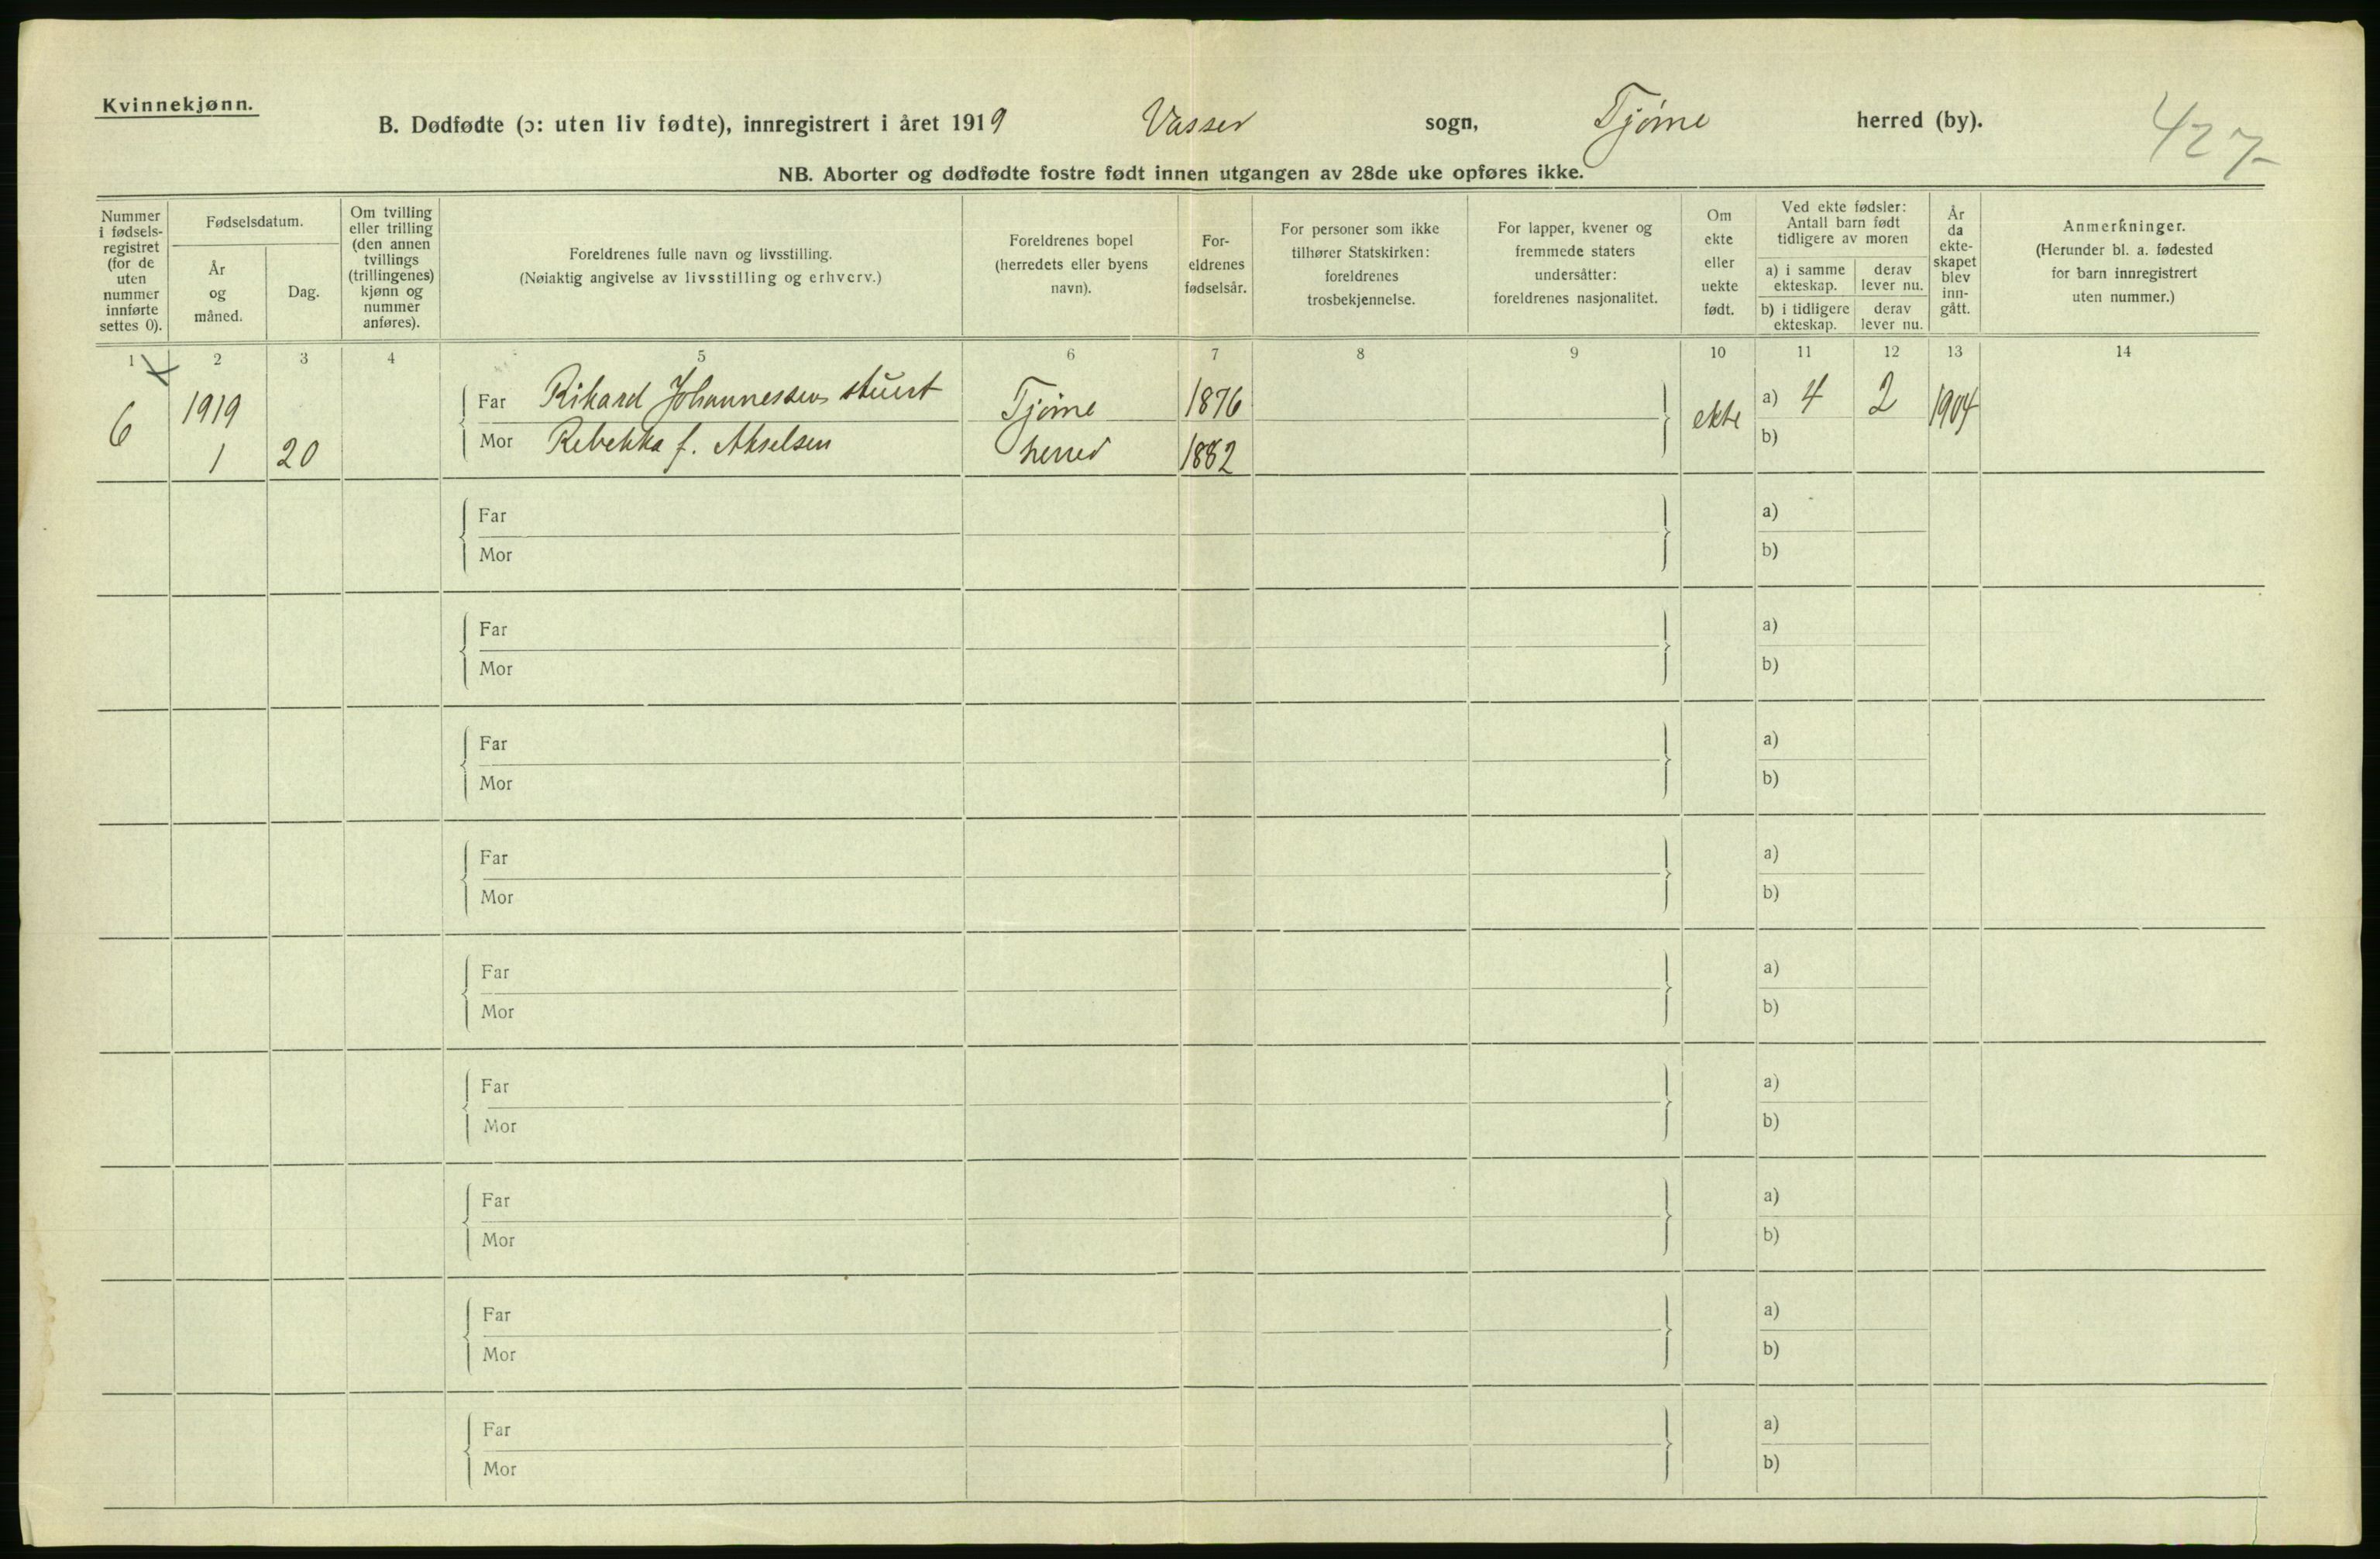 Kvinnekjønn.
B. Dødfødte (ɔ: uten liv fødte), innregistrert i året 1919 Vasser sogn, Tjøme herred (by).
427
NB. Aborter og dødfødte fostre født innen utgangen av 28de uke opføres ikke.
Nummer i fødsels- registret (for de uten nummer innførte settes 0).
Fødselsdatum.
År og måned.
Dag.
Om tvilling eller trilling (den annen tvillings (trillingenes) kjønn og nummer anføres).
Foreldrenes fulle navn og livsstilling.
(Nøiaktig angivelse av livsstilling og erhverv.)
Foreldrenes bopel (herredets eller byens navn).
For- eldrenes fødselsår.
For personer som ikke tilhører Statskirken: foreldrenes trosbekjennelse.
For lapper, kvener og fremmede staters undersåtter: foreldrenes nasjonalitet.
Om ekte eller uekte født.
Ved ekte fødsler: Antall barn født tidligere av moren
a) i samme ekteskap.
derav lever nu.
b) i tidligere ekteskap.
derav lever nu.
År da ekte- skapet blev inn- gått.
Anmerkninger.
(Herunder bl. a. fødested for barn innregistrert uten nummer.)
1 2 3 4 5 6 7 8 9 10 11 12 13 14
6 1919 Far Rikard Johannessen stuert Tjøme 1876 ekte a) 4 2 1904
1 20 Mor Rebekka f. Akselsen herred 1882 b)
Far a)
Mor b)
Far a)
Mor b)
Far a)
Mor b)
Far a)
Mor b)
Far a)
Mor b)
Far a)
Mor b)
Far a)
Mor b)
Far a)
Mor b)
Far a)
Mor b)